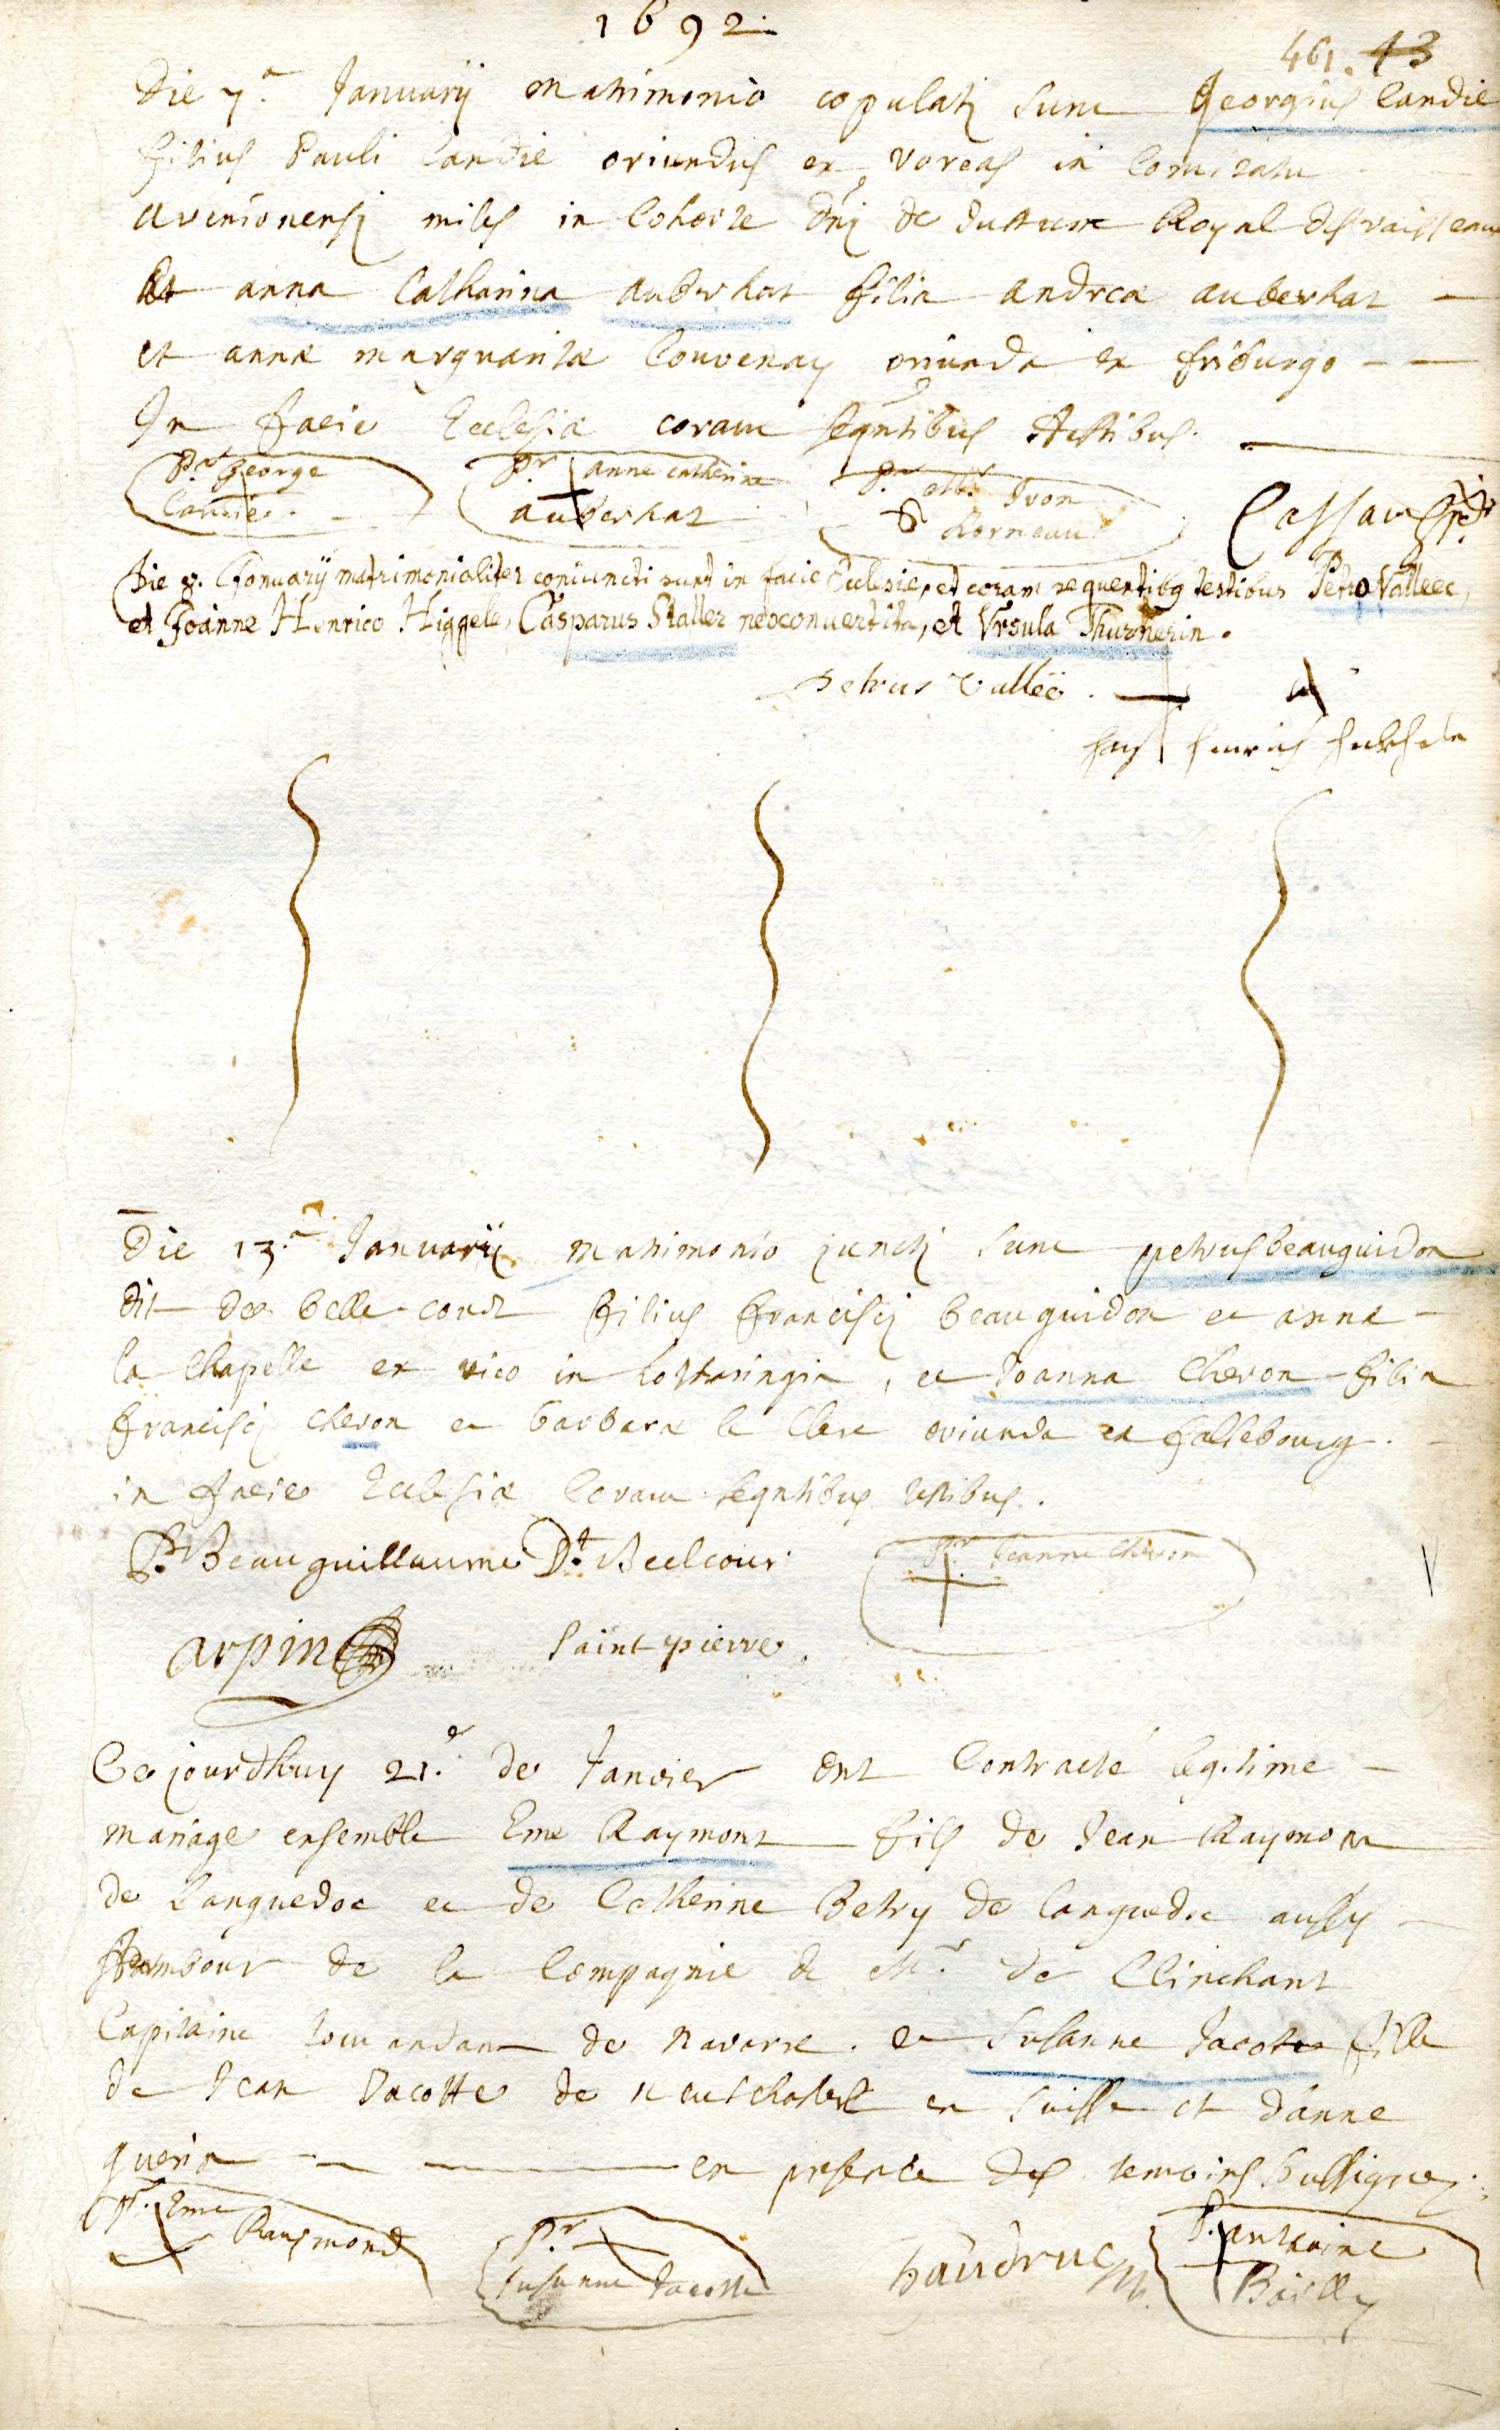 1692.
461. 43
Die 7.a Januarij matrimonio copulatj sunt Georgius Candie
filius Pauli Candie oriundus ex Voreas in Comitatu
avenionensj miles in Cohorte dnj de Royal des vaisseaux
Et anna Catharina auberhat filia andreæ auberhat —
et annæ marguaritæ Couvenay oriunda ex friburgo — —
In facie Ecclesiæ coram seqntibus testibus.
P.r George
Candie.
P.r anne catherine
auberhat
P.r Yvon
Corneau
Die 8. Januarij matrimonialiter coniuncti sunt in facie Ecclesiæ, et coram sequentibq testibus Petro Valleec,
et Joanne Henrico Higgele, Casparus Staller neoconuertita, et Vrsula Thurnerin.
Petrus Valleé.
Die 13.a Januarij matrimonio junctj sunt petrus beauguidon
dit de belle-court filius francisej beauguidon et anna —
la Chapelle ex vico in Lotharingia, et Joanna Cheron filia
franciscj cheron et barbara le Clerc oriunda ex falsebourg. —
in facie Ecclesiæ Coram seqntibus testibus.
P.r Beauguillaume D.t Beelcour
P.r Jeanne Cheron
arpin
Saint pierre.
Ce jourdhuy 21.e de Janvier ont Contracté legitime —
mariage ensemble Eme Raymont fils de Jean Raymont
de Languedoc et de Catherine Betry de languedoc aussy —
tambour de la Compagnie de Mr. de Clinchant
Capitaine Comandant de navarre. et Susanne Jacotte fille
de Jean Jacotte de neufchastel en Suisse et d'anne
guerin — — en presence des temoins soussignez.
P.r Eme Raymond
P.r
susanne Jacotte
haudruc
P. anthoine
Bailly